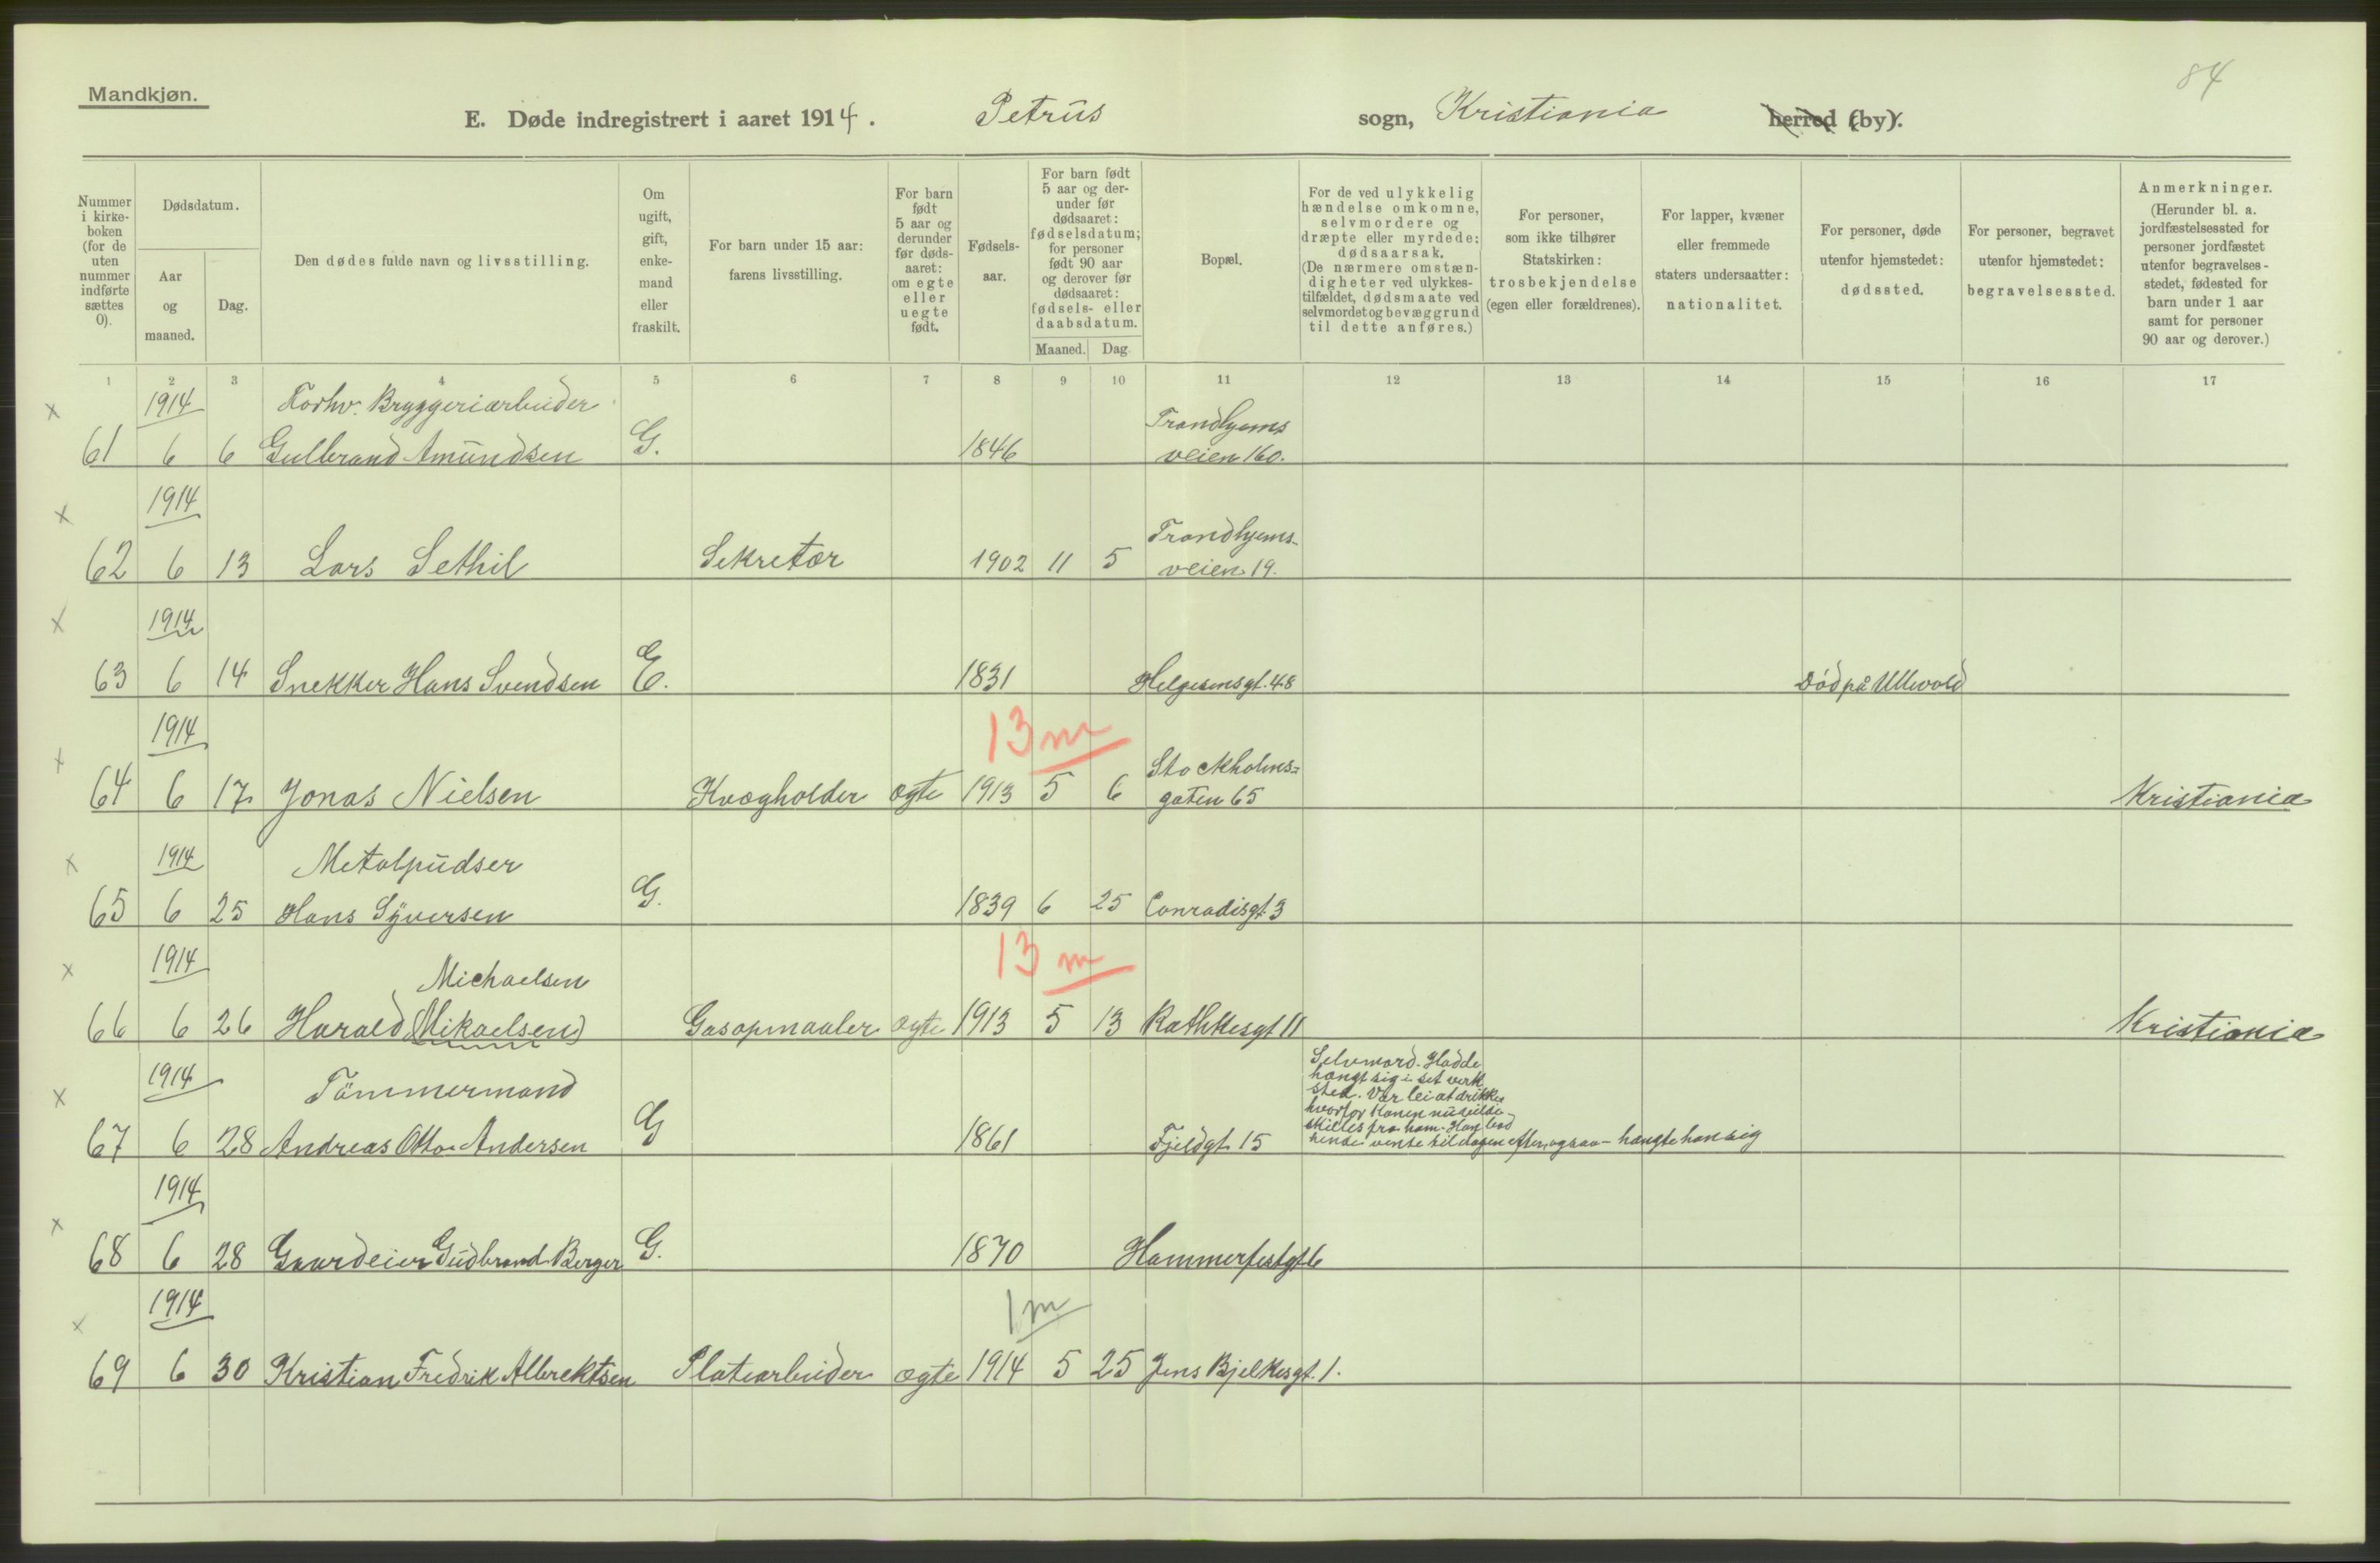 84
Mandkjøn.
E. Døde indregistrert i aaret 1914. Petrus sogn, Kristiania herred (by).
Nummer
i kirke-
boken
(for de
uten
nummer
indførte
sættes
0).
Dødsdatum.
Aar
og
maaned.
Dag.
Den dødes fulde navn og livsstilling.
Om
ugift,
gift,
enke-
mand
eller
fraskilt.
For barn under 15 aar:
farens livsstilling.
For barn
født
5 aar og
derunder
før døds-
aaret:
om egte
eller
uegte
født.
Fødsels-
aar.
For barn født
5 aar og der-
under før
dødsaaret:
fødselsdatum;
for personer
født 90 aar
og derover før
dødsaaret:
fødsels- eller
daabsdatum.
Maaned. Dag.
Bopæl.
For de ved ulykkelig
hændelse omkomne,
selvmordere og
dræpte eller myrdede:
dødsaarsak.
(De nærmere omstæn-
digheter ved ulykkes-
tilfældet, dødsmaate ved
selvmordet og bevæggrund
til dette anføres.)
For personer,
som ikke tilhører
Statskirken:
trosbekjendelse
(egen eller forældrenes).
For lapper, kvæner
eller fremmede
staters undersaatter:
nationalitet.
For personer, døde
utenfor hjemstedet:
dødssted.
For personer, begravet
utenfor hjemstedet:
begravelsessted.
Anmerkninger.
(Herunder bl. a.
jordfæstelsessted for
personer jordfæstet
utenfor begravelses-
stedet, fødested for
barn under 1 aar
samt for personer
90 aar og derover.)
1 2 3 4 5 6 7 8 9 10 11 12 13 14 15 16 17
x 1914 Forhv. Bryggeriarbeider Trondhjems
61 6 6 Gulbrand Amundsen G. 1846 veien 160.
x 1914 Trondhjems-
62 6 13 Lars Sethil Sekretær 1902 11 5 veien 19.
x 1914
63 6 14 Snekker Hans Svendsen E. 1831 Helgesensgt. 48 Død på Ullevold
x 1914 13 m Stockholms=
64 6 17 Jonas Nielsen Kvægholder ægte 1913 5 6 gaten 65 Kristiania
x 1914 Metalpudser
65 6 25 Hans Syversen G. 1839 6 25 Conradisgt. 3
x 1914 Michaelsen 13 m
66 6 26 Harald (Mikaelsen) Gasopmaaler ægte 1913 5 13 Rathkesgt 11 Kristiania
x 1914 Tömmermand
67 6 28 Andreas Otto Andersen G 1861 Fjeldgt. 15
Selvmord. Hadde
hængt sig i set verk
sted. Var lei at drikke
hvorfor konen nu vilde
skilles fra ham. Han bad
hende vente til dagen efter, og saa hængte han sig
x 1914
68 6 28 Gaardeier Gudbrand Berger G. 1870 Hammerfestgt 6
x 1914 1 m
69 6 30 Kristian Fredrik Albrektsen Platearbeider ægte 1914 5 25 Jens Bjelkesgt. 1.